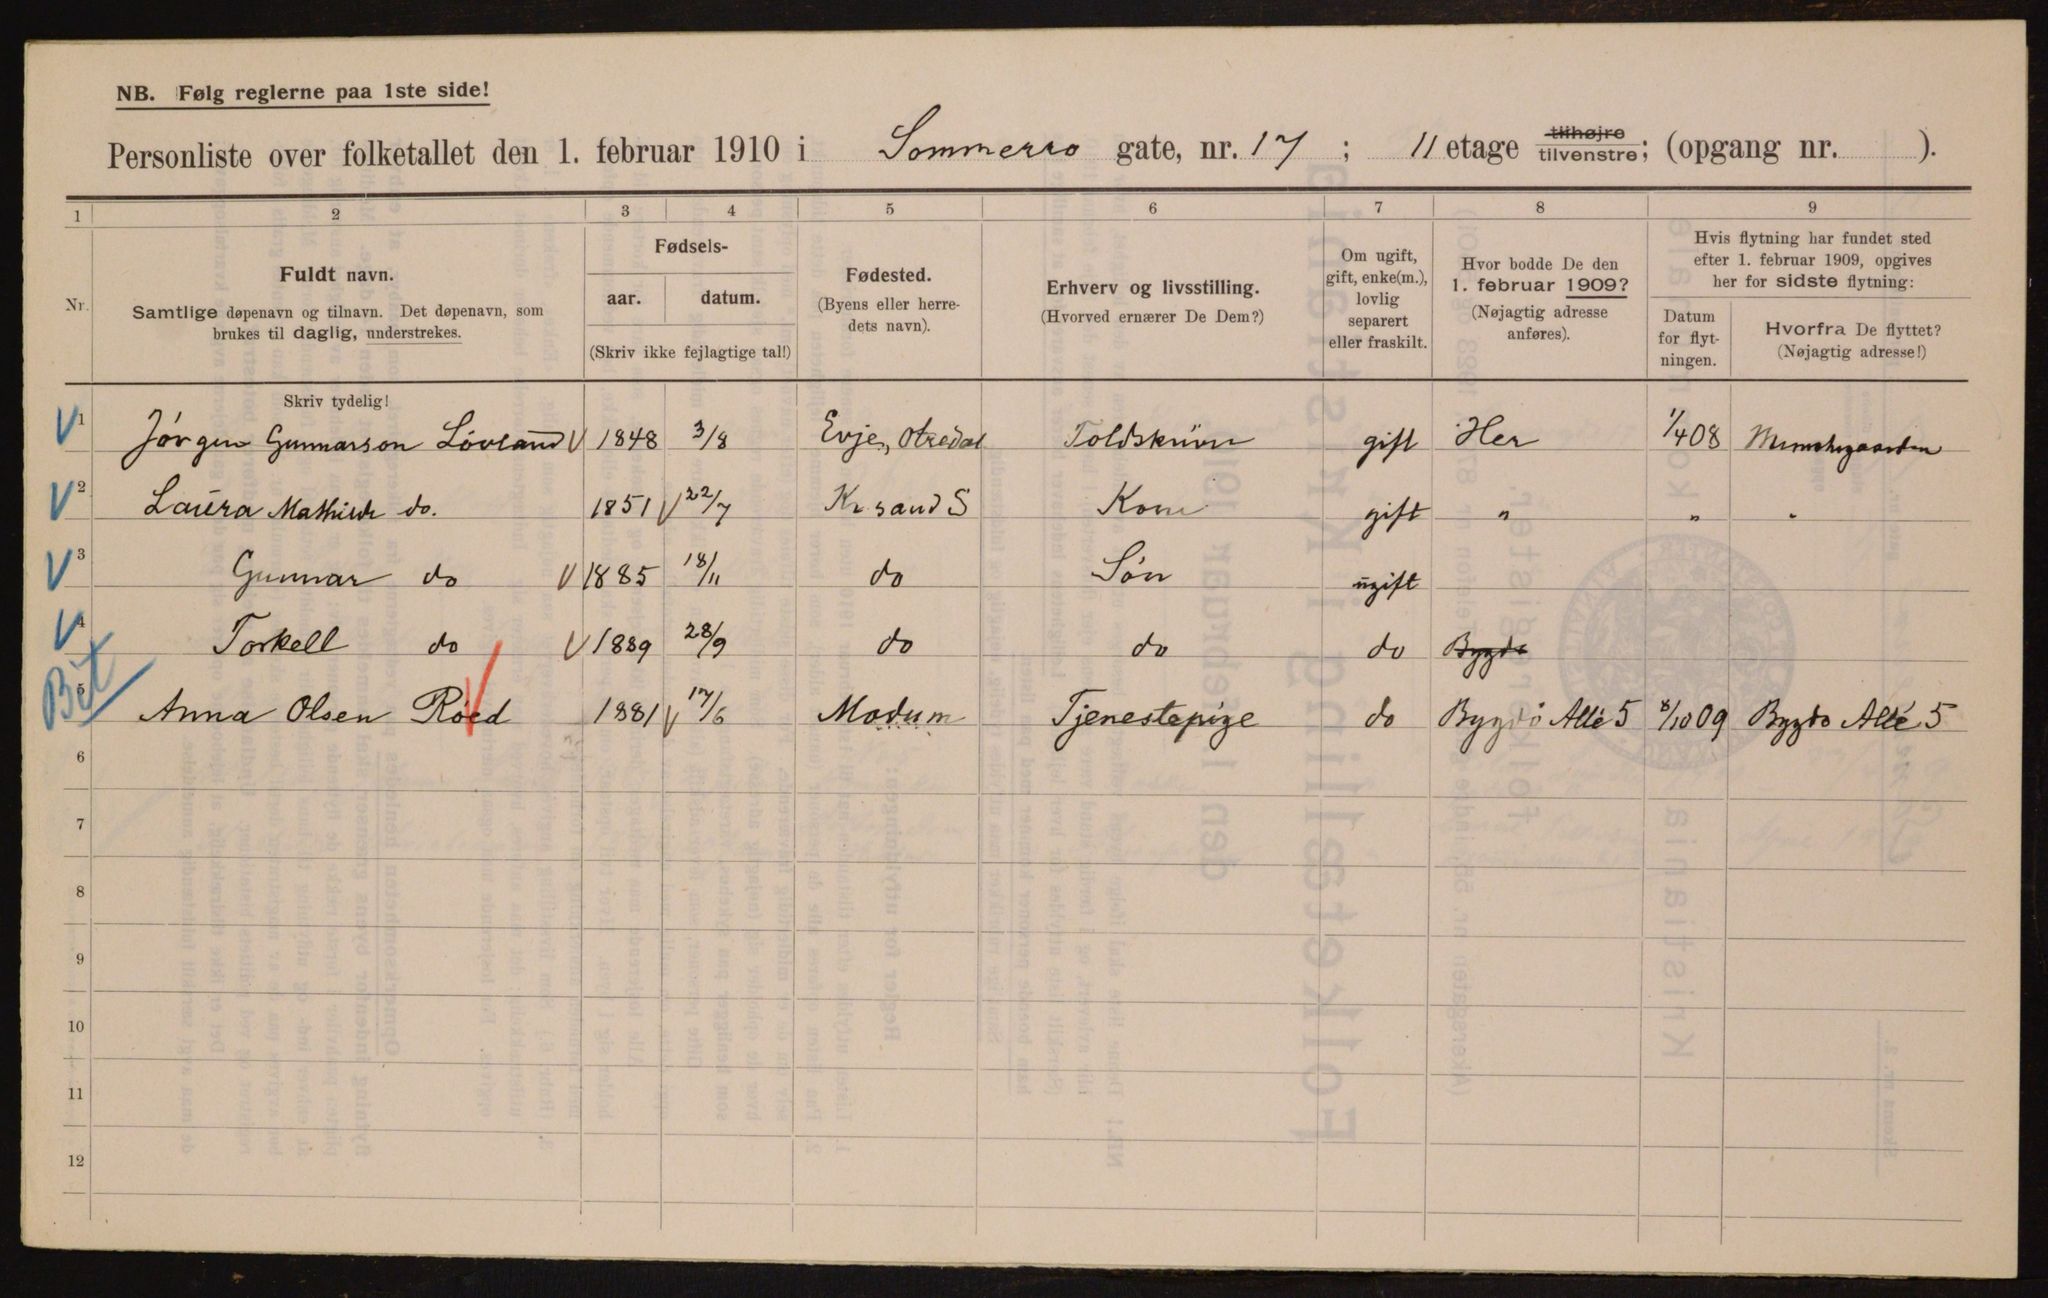 NB. Følg reglerne paa 1ste side!
Personliste over folketallet den 1. februar 1910 i Sommerro gate, nr. 17; II etage tilhøjre tilvenstre; (opgang nr. ).
1 2 3 4 5 6 7 8 9
Nr.
Fuldt navn.
Samtlige døpenavn og tilnavn. Det døpenavn, som
brukes til daglig, understrekes.
Fødsels-
aar. datum.
(Skriv ikke fejlagtige tal!)
Fødested.
(Byens eller herre-
dets navn).
Erhverv og livsstilling.
(Hvorved ernærer De Dem?)
Om ugift,
gift, enke(m.),
lovlig
separert
eller fraskilt.
Hvor bodde De den
1. februar 1909?
(Nøjagtig adresse
anføres).
Hvis flytning har fundet sted
efter 1. februar 1909, opgives
her for sidste flytning:
Datum
for flyt-
ningen.
Hvorfra De flyttet?
(Nøjagtig adresse!)
Skriv tydelig!
V 1 Jørgen Gunnarson Løvland V 1848 3/8 Evje, Otredal gift Her 1/4 08
V 2 Laura Mathilde do. 1851 V 22/7 Krsand S Kone gift " " "
V 3 Gunnar do V 1885 18/11 do Søn ugift
V 4 Torkell do V 1889 28/9 do do do Bygdø
Bet 5 Anna Olsen Røed V 1881 V 17/6 Modum Tjenestepige do Bygdø Allé 5 8/10 09 Bygdø Allé 5
6
7
8
9
10
11
12